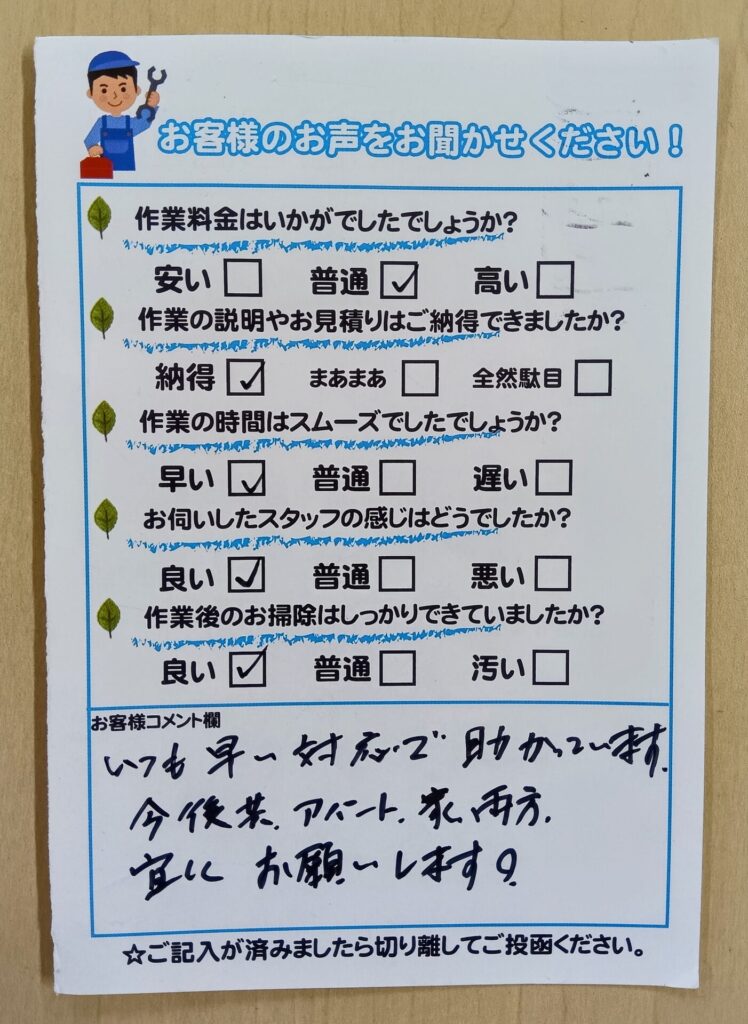 お客様のお声をお聞かせください！
作業料金はいかがでしたでしょうか?
安い☐ 普通☑ 高い☐
作業の説明やお見積りはご納得できましたか?
納得☑ まあまあ☐ 全然駄目☐
作業の時間はスムーズでしたでしょうか?
早い☑ 普通☐ 遅い☐
お伺いしたスタッフの感じはどうでしたか?
良い☑ 普通☐ 悪い☐
作業後のお掃除はしっかりできていましたか?
良い☑ 普通☐ 汚い☐
お客様コメント欄
いつも早い対応で助かっています.
今後共、アパート、家、両方、
宜しくお願いします。
☆ご記入が済みましたら切り離してご投函ください。